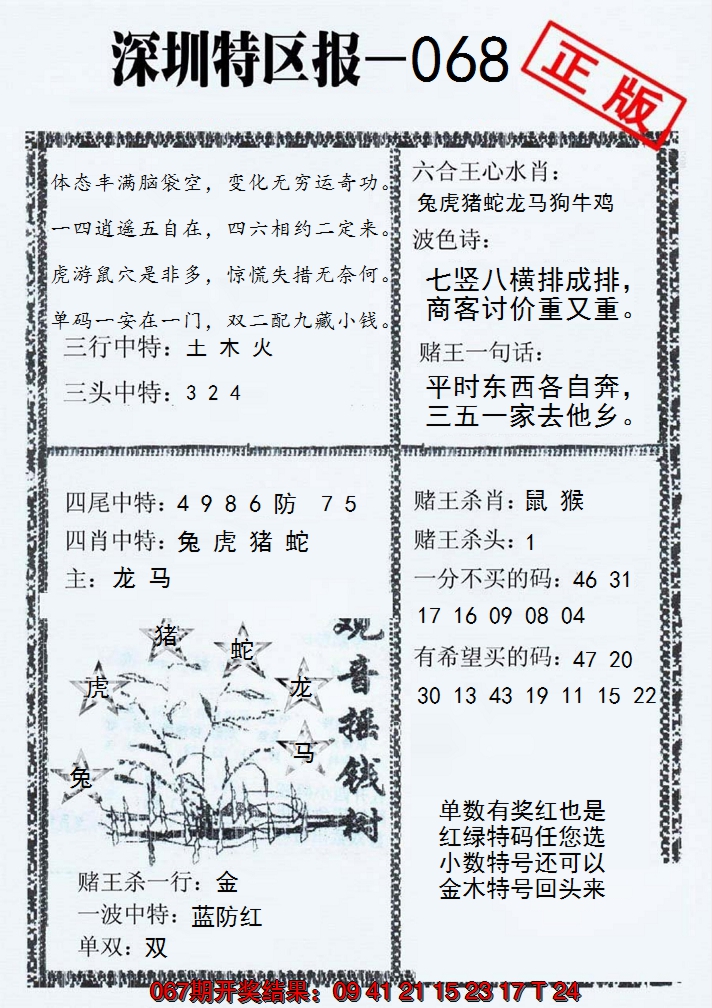 深圳特区报—068
正版
体态丰满脑袋空，变化无穷运奇功。
一四逍遥五自在，四六相约二定来。
虎游鼠穴是非多，惊慌失措无奈何。
单码一安在一门，双二配九藏小钱。
三行中特：土 木 火
三头中特：3 2 4
六合王心水肖：
兔虎猪蛇龙马狗牛鸡
波色诗：
七竖八横排成排，
商客讨价重又重。
赌王一句话：
平时东西各自奔，
三五一家去他乡。
四尾中特：4 9 8 6 防 7 5
四肖中特：兔 虎 猪 蛇
主：龙 马
猪
蛇
虎
龙
马
兔
观音摇钱树
赌王杀一行：金
一波中特：蓝防红
单双：双
赌王杀肖：鼠 猴
赌王杀头：1
一分不买的码：46 31
17 16 09 08 04
有希望买的码：47 20
30 13 43 19 11 15 22
单数有奖红也是
红绿特码任您选
小数特号还可以
金木特号回头来
067期开奖结果：09 41 21 15 23 17 T 24